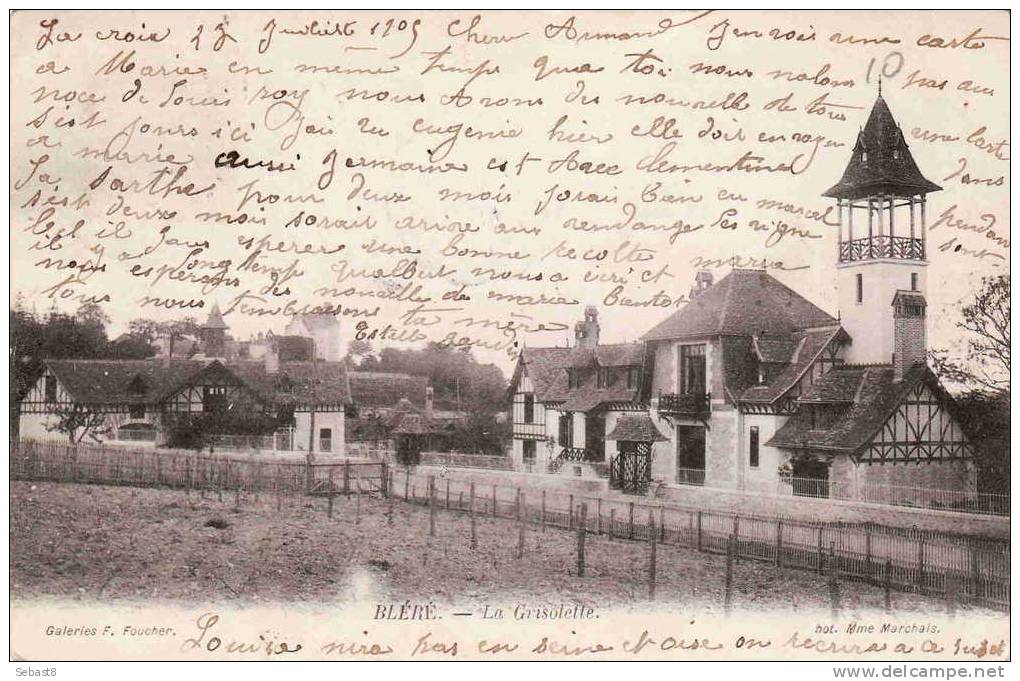 La croix 27 Juillet 1905 Cher Armand J'envoir une carte
a Marie en même temps qua toi nous nalons pas aux
noce de Louis roy nous avons des nouvelle de tous
s'est jours ici J'ais vu eugenie hier elle doit envoyer une carte
a marie aussi Germaine est avec clementine dans
la Sarthe pour deux mois jorais bien en marcel pendan
s'est deux mois sorait arivé aux vendange les vigne sont
bel il faus esperer une bonne recolte maria
il y a longtemp qualbert nous a ecrit
nous espérons des nouvelle de marie bientot
tous nous t'embrasons ta mère
Estelle
10
BLÉRÉ. — La Grisolette.
Galeries F. Foucher.
hot. Mme Marchais.
Louisa nira pas en seine et oise on recrira a ce sujet
Sebast8
www.delcampe.net